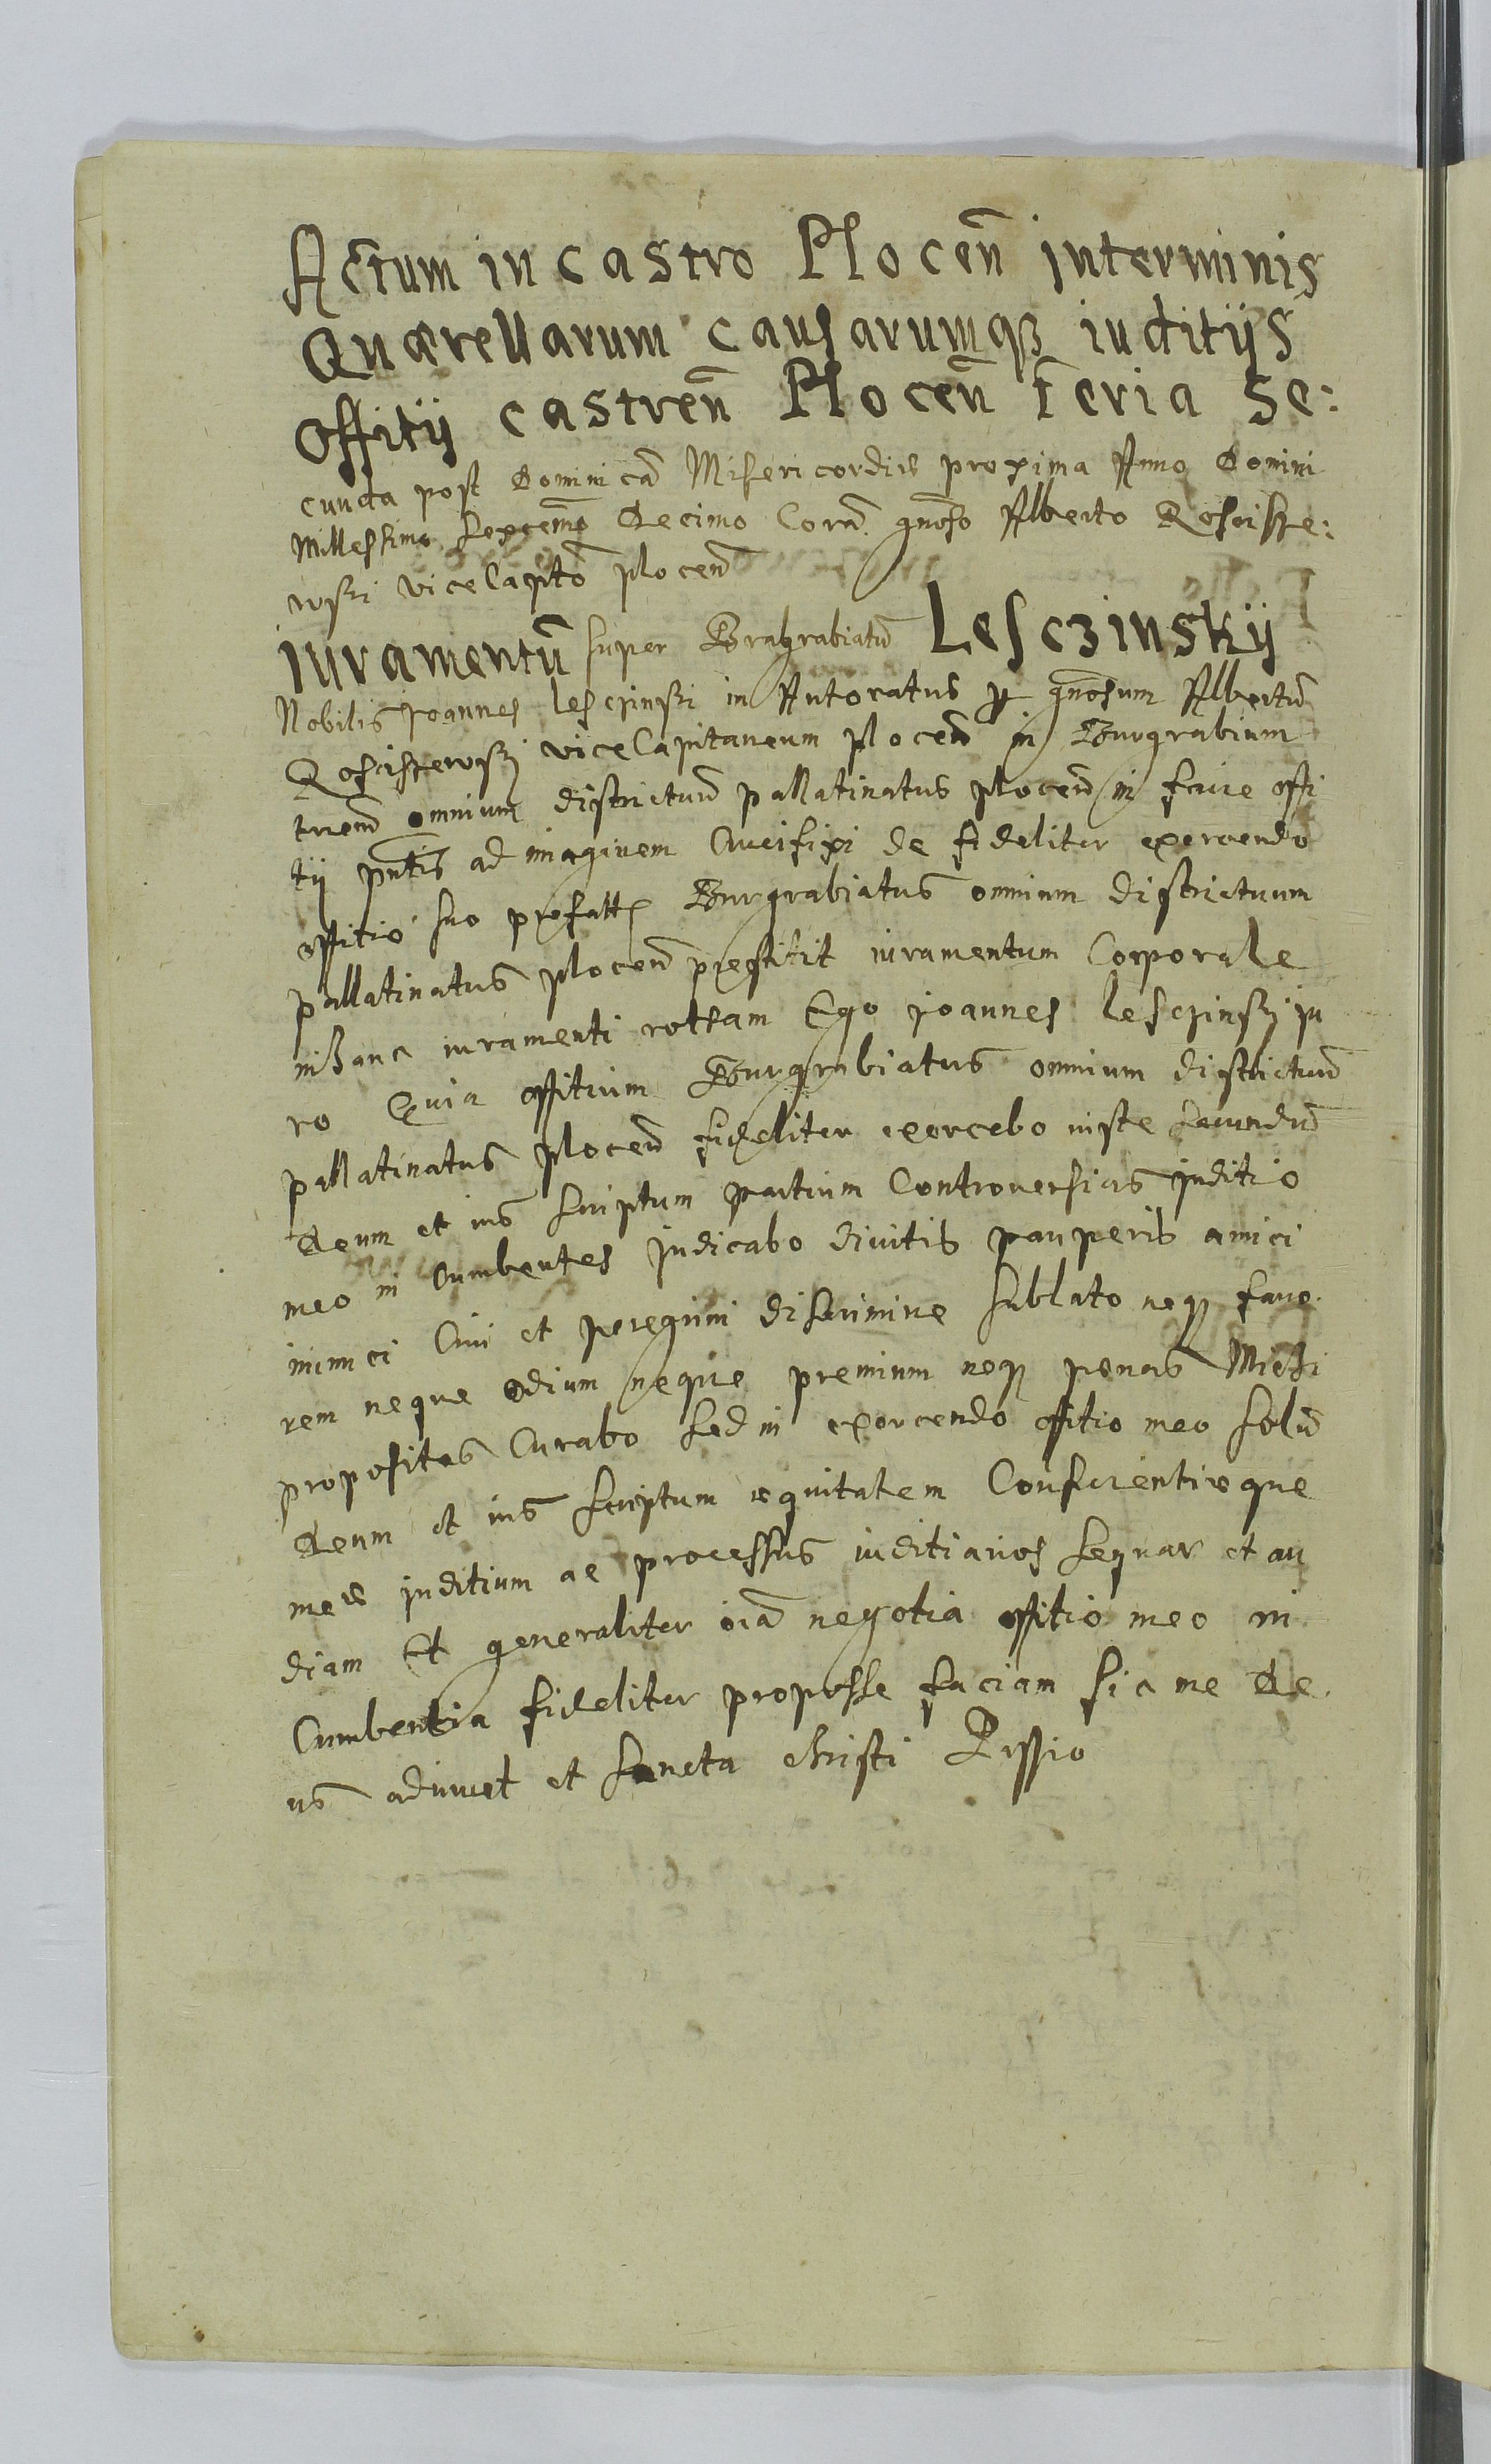 Actum in Castro Plocen̄ in terminis
Quærellarum Causarumqȝ iuditijs
Offitij Castren̄ Plocen̄ Feria Se:
cunda post Dominicā Misericordiæ proxima Anno Domini
Millessimo Sexcenmo Decimo Corā gnoso Alberto Roscisze:
wski viceCapitō plocen̄
Iuramentū super Brabgrabiatū Lesczinskij
Nobilis Joannes Lesczinski in Autoratus p gnosum Albertū
Rosciszewskj viceCapitaneum plocen̄ in Burgrabium
omnium districtuū pallatinatus plocen̄ in facie offi
tij pntis ad imaginem Crucifixi de fideliter exercendo
offitio suo prefatti Burgrabiatus omnium districtuum
pallatinatus plocen̄ prestitit iuramentum Corporale
in hanc iuramenti rotham Ego Joannes Lesczinskj ju
ro Quia offitium Burgrabiatus omnium districtuū
pallatinatus plocen̄ fideliter exercebo iuste secundū
Deum et ius scriptum partium Controuersias juditio
meo in Cumbentes judicabo diuitis pauperis amici
inimici Ciui et peregrini discrimine sublato neqȝ fauo
rem neque odium neque premium neqȝ penas Michi
propositas Curabo sed in exercendo offitio meo solū
Deum et ius scriptum æquitatem Conscientiæque
meæ juditium ac processus iuditiarios sequar et au
diam Et generaliter oīa negotia offitio meo in
Cumbentia fideliter proposse faciam sic me De
us adiuuet et sancta christi Passio